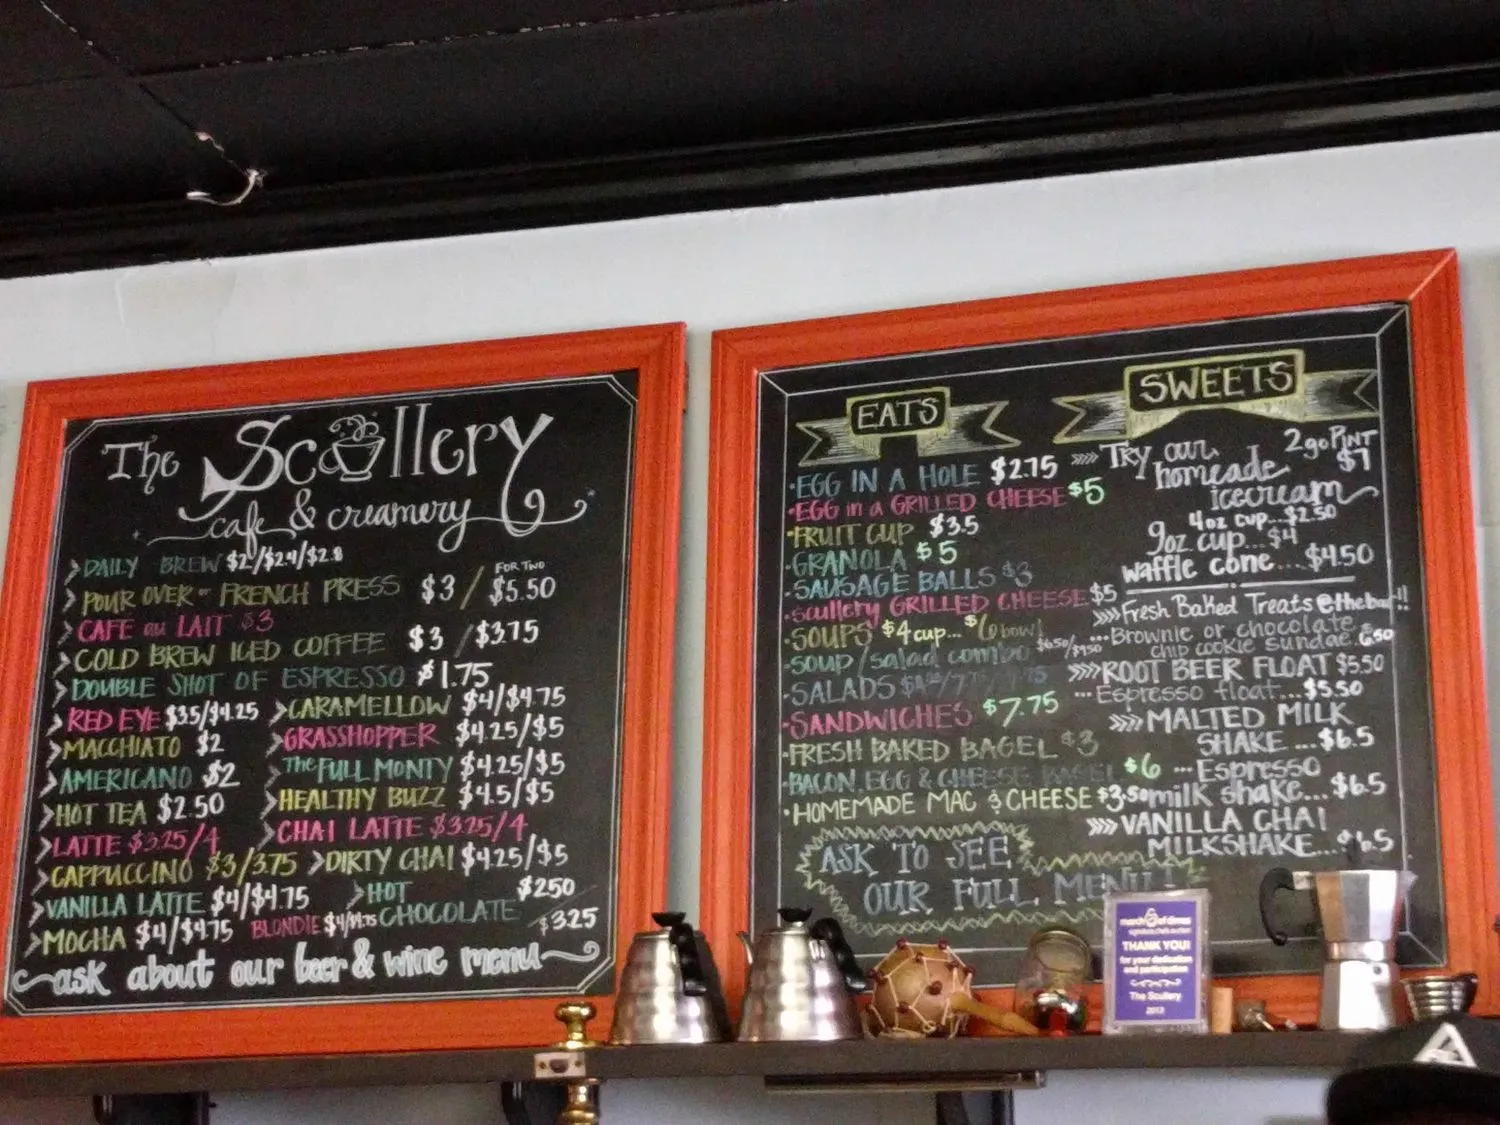 The Scullery
cafe & creamery
DAILY BREW $2/$2.4/$2.8
POUR OVER or FRENCH PRESS $3 / FOR TWO $5.50
CAFE au LAIT $3
COLD BREW ICED COFFEE $3 / $3.75
DOUBLE SHOT OF ESPRESSO $1.75
RED EYE $3.5/$4.25
MACCHIATO $2
AMERICANO $2
HOT TEA $2.50
LATTE $3.25/4
CAPPUCCINO $3/3.75
VANILLA LATTE $4/$4.75
MOCHA $4/$4.75
CARAMELLOW $4/$4.75
GRASSHOPPER $4.25/$5
The FULL MONTY $4.25/$5
HEALTHY BUZZ $4.5/$5
CHAI LATTE $3.25/4
DIRTY CHAI $4.25/$5
HOT CHOCOLATE $2.50 / $3.25
BLONDIE $4/$4.75
ask about our beer & wine menu
EATS
EGG IN A HOLE $2.75
EGG in a GRILLED CHEESE $5
FRUIT CUP $3.5
GRANOLA $5
SAUSAGE BALLS $3
Scullery GRILLED CHEESE $5
SOUPS $4 cup... $6 bowl
soup/salad combo $6.50/$9.50
SALADS
SANDWICHES $7.75
FRESH BAKED BAGEL $3
BACON, EGG & CHEESE BAGEL $6
HOMEMADE MAC & CHEESE $3.50
ASK TO SEE
OUR FULL MENU!
SWEETS
Try our
homeade
icecream
2 go PINT
$7
4oz cup...$2.50
9oz cup...$4
waffle cone...$4.50
Fresh Baked Treats @ the bar!!
...Brownie or chocolate
chip cookie sundae. 6.50
ROOT BEER FLOAT $5.50
...Espresso float...$5.50
MALTED MILK
SHAKE...$6.5
...Espresso
milk shake...$6.5
VANILLA CHAI
MILKSHAKE...$6.5
march of dimes
signature chefs auction
THANK YOU!
for your dedication
and participation
The Scullery
2013